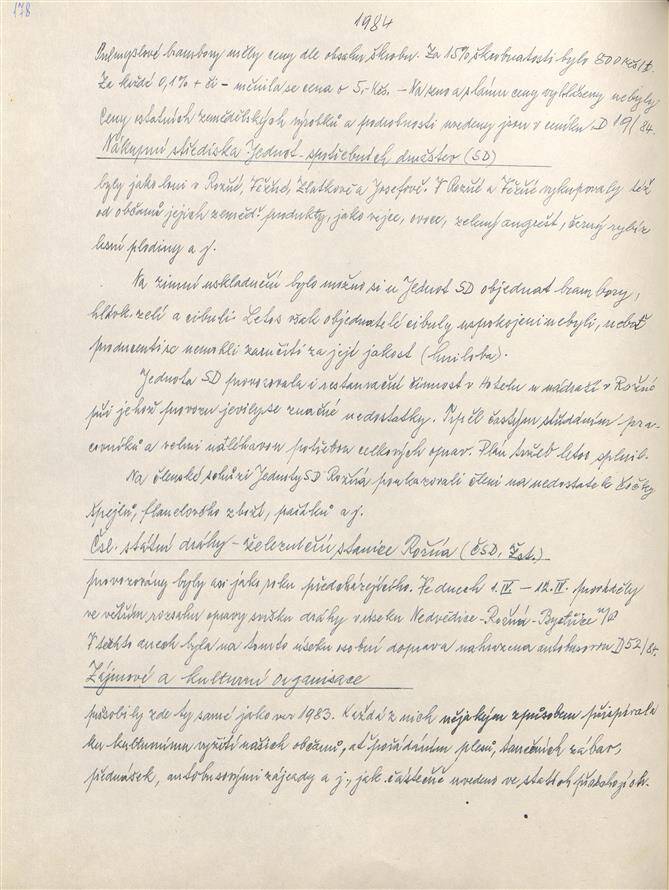 178
1984
Průmyslové brambory měly ceny dle obsahu škrobu. Za 15% škrobnatosti bylo 800 Kčs/t.
Za každé 0,1% + či - měnila se cena o 5,- Kčs. - Na seno a slámu ceny vyhlášeny nebyly
Ceny ostatních zemědělských výrobků a podrobnosti uvedeny jsou v ceníku D 19/84.
Nákupní střediska Jednot - spotřebních družstev (SD)
byly jako loni v Rožné, Věžné, Zlatkově a Josefově. V Rožné a Věžné vykupovaly též
od občanů jejich zeměd. produkty, jako vejce, ovoce, zelený angrešt, černý rybíz
lesní plodiny a j.
Na zimní uskladnění bylo možno si u Jednot SD objednat brambory,
hlávk. zelí a cibuli. Letos však objednatelé cibule uspokojeni nebyli, neboť
producenti se nemohli zaručiti za její jakost (hniloba).
Jednota SD provozovala i restaurační činnost v Hotelu u nádraží v Rožné
při jehož provozu jevily se značné nedostatky. Trpěl častým střídáním pra-
covníků a velmi naléhavou potřebou celkových oprav. Plán tržeb letos splnil.
Na členské schůzi Jednoty SD Rožná poukazovali členi na nedostatek čočky
špejlů, flanelového zboží, paťáků a j.
Čsl. státní dráhy - železniční stanice Rožná (ČSD, žst.)
provozovány byly asi jako roku předcházejícího. Ve dnech 1.IV. - 12.IV. prováděly
ve větším rozsahu opravy svršku dráhy v úseku Nedvědice - Rožná - Bystřice n/P
V těchto dnech byla na tomto úseku osobní doprava nahrazena autobusovou D52/84.
Zájmové a kulturní organisace
působily zde ty samé jako v r. 1983. Každá z nich nějakým způsobem přispívala
ku kulturnímu vyžití našich občanů, ať pořádáním plesů, tanečních zábav,
přednášek, autobusovými zájezdy a j., jak částečně uvedeno ve statích předchozích.